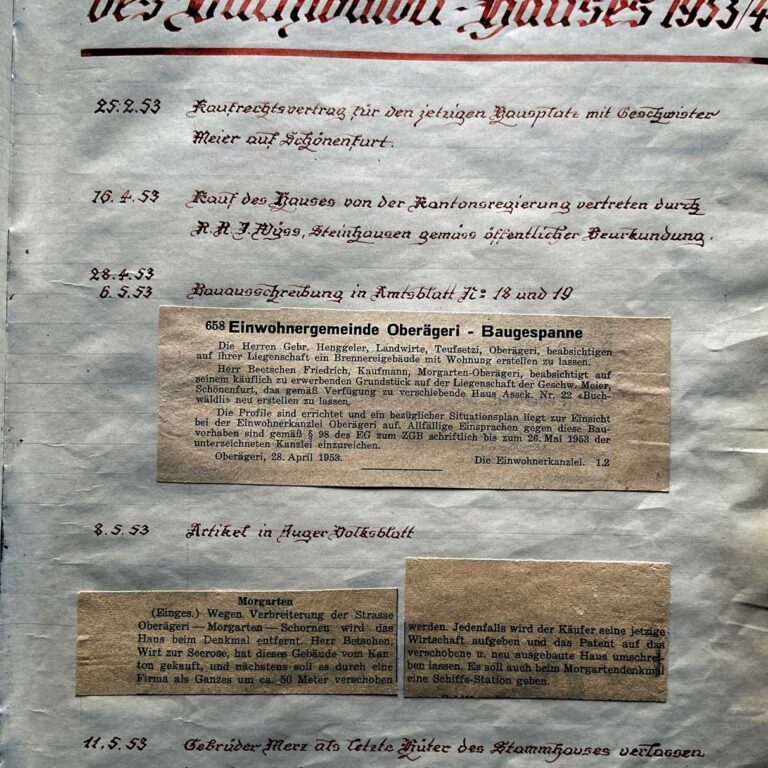 des Buchwäldli-Hauses 1953/4
25.2.53 Kaufrechtsvertrag für den jetzigen Hausplatz mit Geschwister
Meier auf Schönenfurt.
16.4.53 Kauf des Hauses von der Kantonsregierung vertreten durch
R.R.J.Wyss, Steinhausen gemäss öffentlicher Beurkundung.
28.4.53
6.5.53 Bauausschreibung in Amtsblatt No: 18 und 19
658 Einwohnergemeinde Oberägeri - Baugespanne
Die Herren Gebr. Henggeler, Landwirte, Teufsetzi, Oberägeri, beabsichtigen
auf ihrer Liegenschaft ein Brennereigebäude mit Wohnung erstellen zu lassen.
Herr Beetschen Friedrich, Kaufmann, Morgarten-Oberägeri, beabsichtigt auf
seinem käuflich zu erwerbenden Grundstück auf der Liegenschaft der Geschw. Meier,
Schönenfurt, das gemäß Verfügung zu verschiebende Haus Assek. Nr. 22 «Buch-
wäldli» neu erstellen zu lassen.
Die Profile sind errichtet und ein bezüglicher Situationsplan liegt zur Einsicht
bei der Einwohnerkanzlei Oberägeri auf. Allfällige Einsprachen gegen diese Bau-
vorhaben sind gemäß § 98 des EG zum ZGB schriftlich bis zum 26. Mai 1953 der
unterzeichneten Kanzlei einzureichen.
Oberägeri, 28. April 1953. Die Einwohnerkanzlei. 1.2
8.5.53 Artikel in Zuger Volksblatt
Morgarten
(Einges.) Wegen Verbreiterung der Strasse
Oberägeri — Morgarten — Schornen wird das
Haus beim Denkmal entfernt. Herr Betschen,
Wirt zur Seerose, hat dieses Gebäude vom Kan-
ton gekauft, und nächstens soll es durch eine
Firma als Ganzes um ca. 50 Meter verschoben
werden. Jedenfalls wird der Käufer seine jetzige
Wirtschaft aufgeben und das Patent auf das
verschobene u. neu ausgebaute Haus umschrei-
ben lassen. Es soll auch beim Morgartendenkmal
eine Schiffs-Station geben.
11.5.53 Gebrüder Merz als letzte Hüter des Stammhauses verlassen